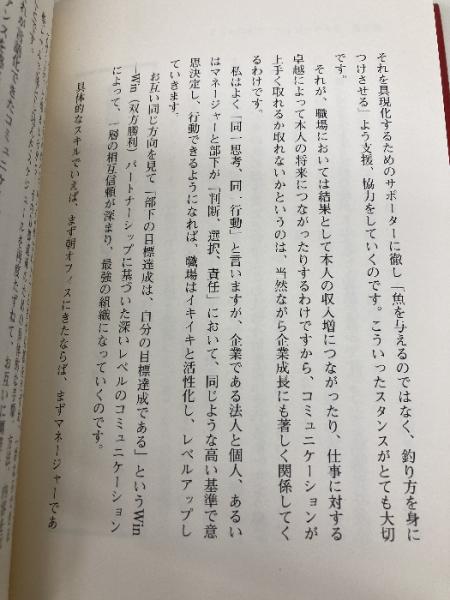 それを具現化するためのサポーターに徹し「魚を与えるのではなく、釣り方を身に
つけさせる」よう支援、協力をしていくのです。こういったスタンスがとても大切
です。
それが、職場においては結果として本人の収入増につながったり、仕事に対する
卓越によって本人の将来につながったりするわけですから、コミュニケーションが
上手く取れるか取れないかというのは、当然ながら企業成長にも著しく関係してく
るわけです。
私はよく「同一思考、同一行動」と言いますが、企業である法人と個人、あるい
はマネージャーと部下が「判断、選択、責任」において、同じような高い基準で意
思決定し、行動できるようになれば、職場はイキイキと活性化し、レベルアップし
ていきます。
お互い同じ方向を見て「部下の目標達成は、自分の目標達成である」というWin
―Win（双方勝利）パートナーシップに基づいた深いレベルのコミュニケーション
によって、一層の相互信頼が深まり、最強の組織になっていくのです。
具体的なスキルでいえば、まず朝オフィスにきたならば、まずマネージャーであ